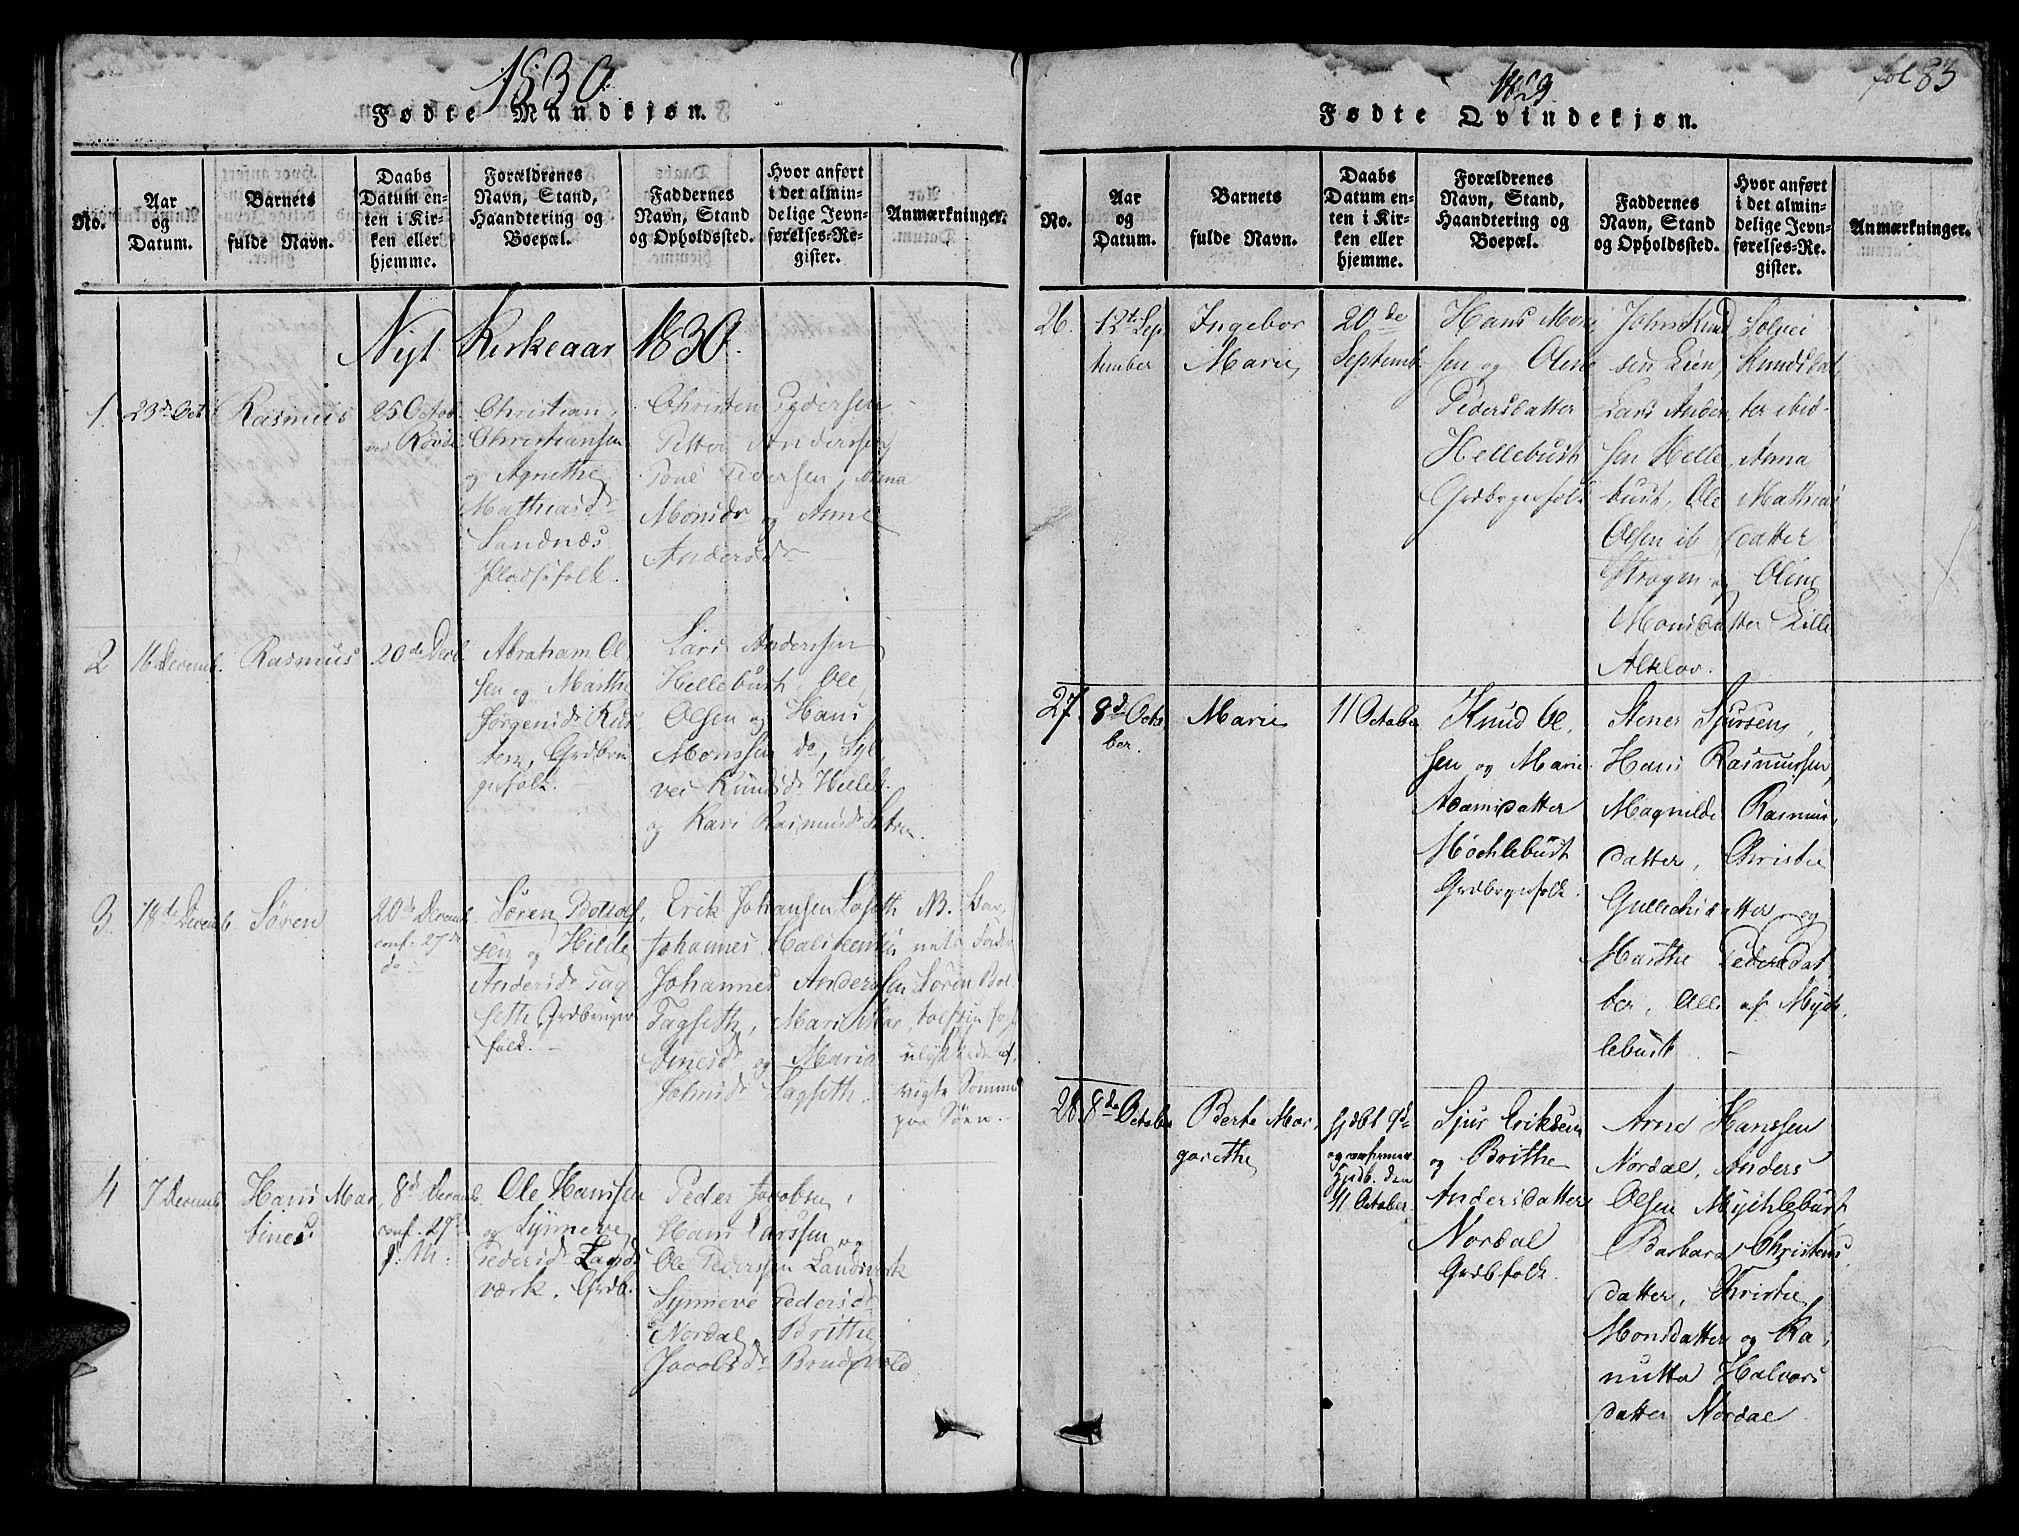 1830
Fødte Mandkjøn.
No.
Aar
og
Datum.
Barnets
fulde Navn.
Daabs
Datum en-
ten i Kir-
ken eller
hjemme.
Forældrenes
Navn, Stand,
Haandtering og
Boepæl.
Faddernes
Navn, Stand
og Opholdssted.
Hvor anført
i det almin-
delige Jevn-
førelses-Re-
gister.
Anmærkninger.
Nyt Kirkeaar 1830.
1.
23de Oct
Rasmus
25 Octob.
ved Rovde
Christian
Christiansen
og Agnethe
Mathiasdr
Sandnæs
Pladsfolk.
Christen Pedersen
Petter Andersen
Pedersen, Anna
Monsdr og Anne
Andersdr
2
16 Decemb.
Rasmus
20de Decb.
Abraham Ol
sen og Marthe
Jørgensdr
Grdbru
gerfolk.
Lars Anderssen
Hellebust, Ole
Olsen og Hans
Monssen do, Syl
vei Knudsdr Helleb.
og Kari Rasmusdr
3.
18de Decemb
Søren
20de Decemb
conf. 27de
do
Søren Bottolf
sen og Hilde
Andersdr Tag
seth Grdbruger
folk.
Erik Johansen
Johannes
Johannes Anderssen
Tagseth, Mari Mar
tinesdr og Maria
Johnsdr Tagseth.
NB. Bar
nets Fader
Søren Bot
tolfsen for
ulykkede af
vigte Sommer
paa Søen.
4
7 Decemb
Hans Mar
tines
8de Decemb.
conf. 27de
s. M.
Ole Hanssen
og Synneve
Pedersdr Lands
værk, Grdb.
Peder Jacobsen,
Hans Larssen og
Ole Pederssen Landsverk
Synneve Pedersdr
Nordal, Brithe
Jacobsdr Brudevold
1829
fol 83
Fødte Qvindekjøn.
No.
Aar
og
Datum.
Barnets
fulde Navn.
Daabs
Datum en-
ten i Kir-
ken eller
hjemme.
Forældrenes
Navn, Stand,
Haandtering og
Boepæl.
Faddernes
Navn, Stand
og Opholdssted.
Hvor anført
i det almin-
delige Jevn-
førelses-Re-
gister.
Anmærkninger.
26.
12te Sep
tember
Ingebor
Marie
20de
Septemb.
Hans Mon
sen og Oline
Pedersdatter
Hellebust
Grdbrgerfolk
John Knud Solvei
sen Lien, Knudsdat
Lars Ander ter ibid.
sen Helle Anna
bust, Ole Mathias
Olsen ib datter
og Oline
Monsdatter Lille
27.
8de Octo
ber.
Marie
11 October
Knud Ol
sen og Marie
Adamsdatter
Møchlebust
Grdbrgerfolk.
Stener Sjursen,
Hans Rasmussen
Magnilde Rasmus
datter, Christie
Gullichsdatter og
Marthe Pedersdat
ter, Alle af Mych
lebust
28.
8de October
Berte Mar
grethe
hjdbt 9de
Hjdb. den
11 October.
Sjur Eriksen
og Brithe
Andersdatter
Nordal
Grdbfolk.
Arne Hanssen
Nordal, Anders
Olsen Mychlebust
Barbara Christens
datter, Christie
Monsdatter og Ra
nutta Halvors
datter Nordal